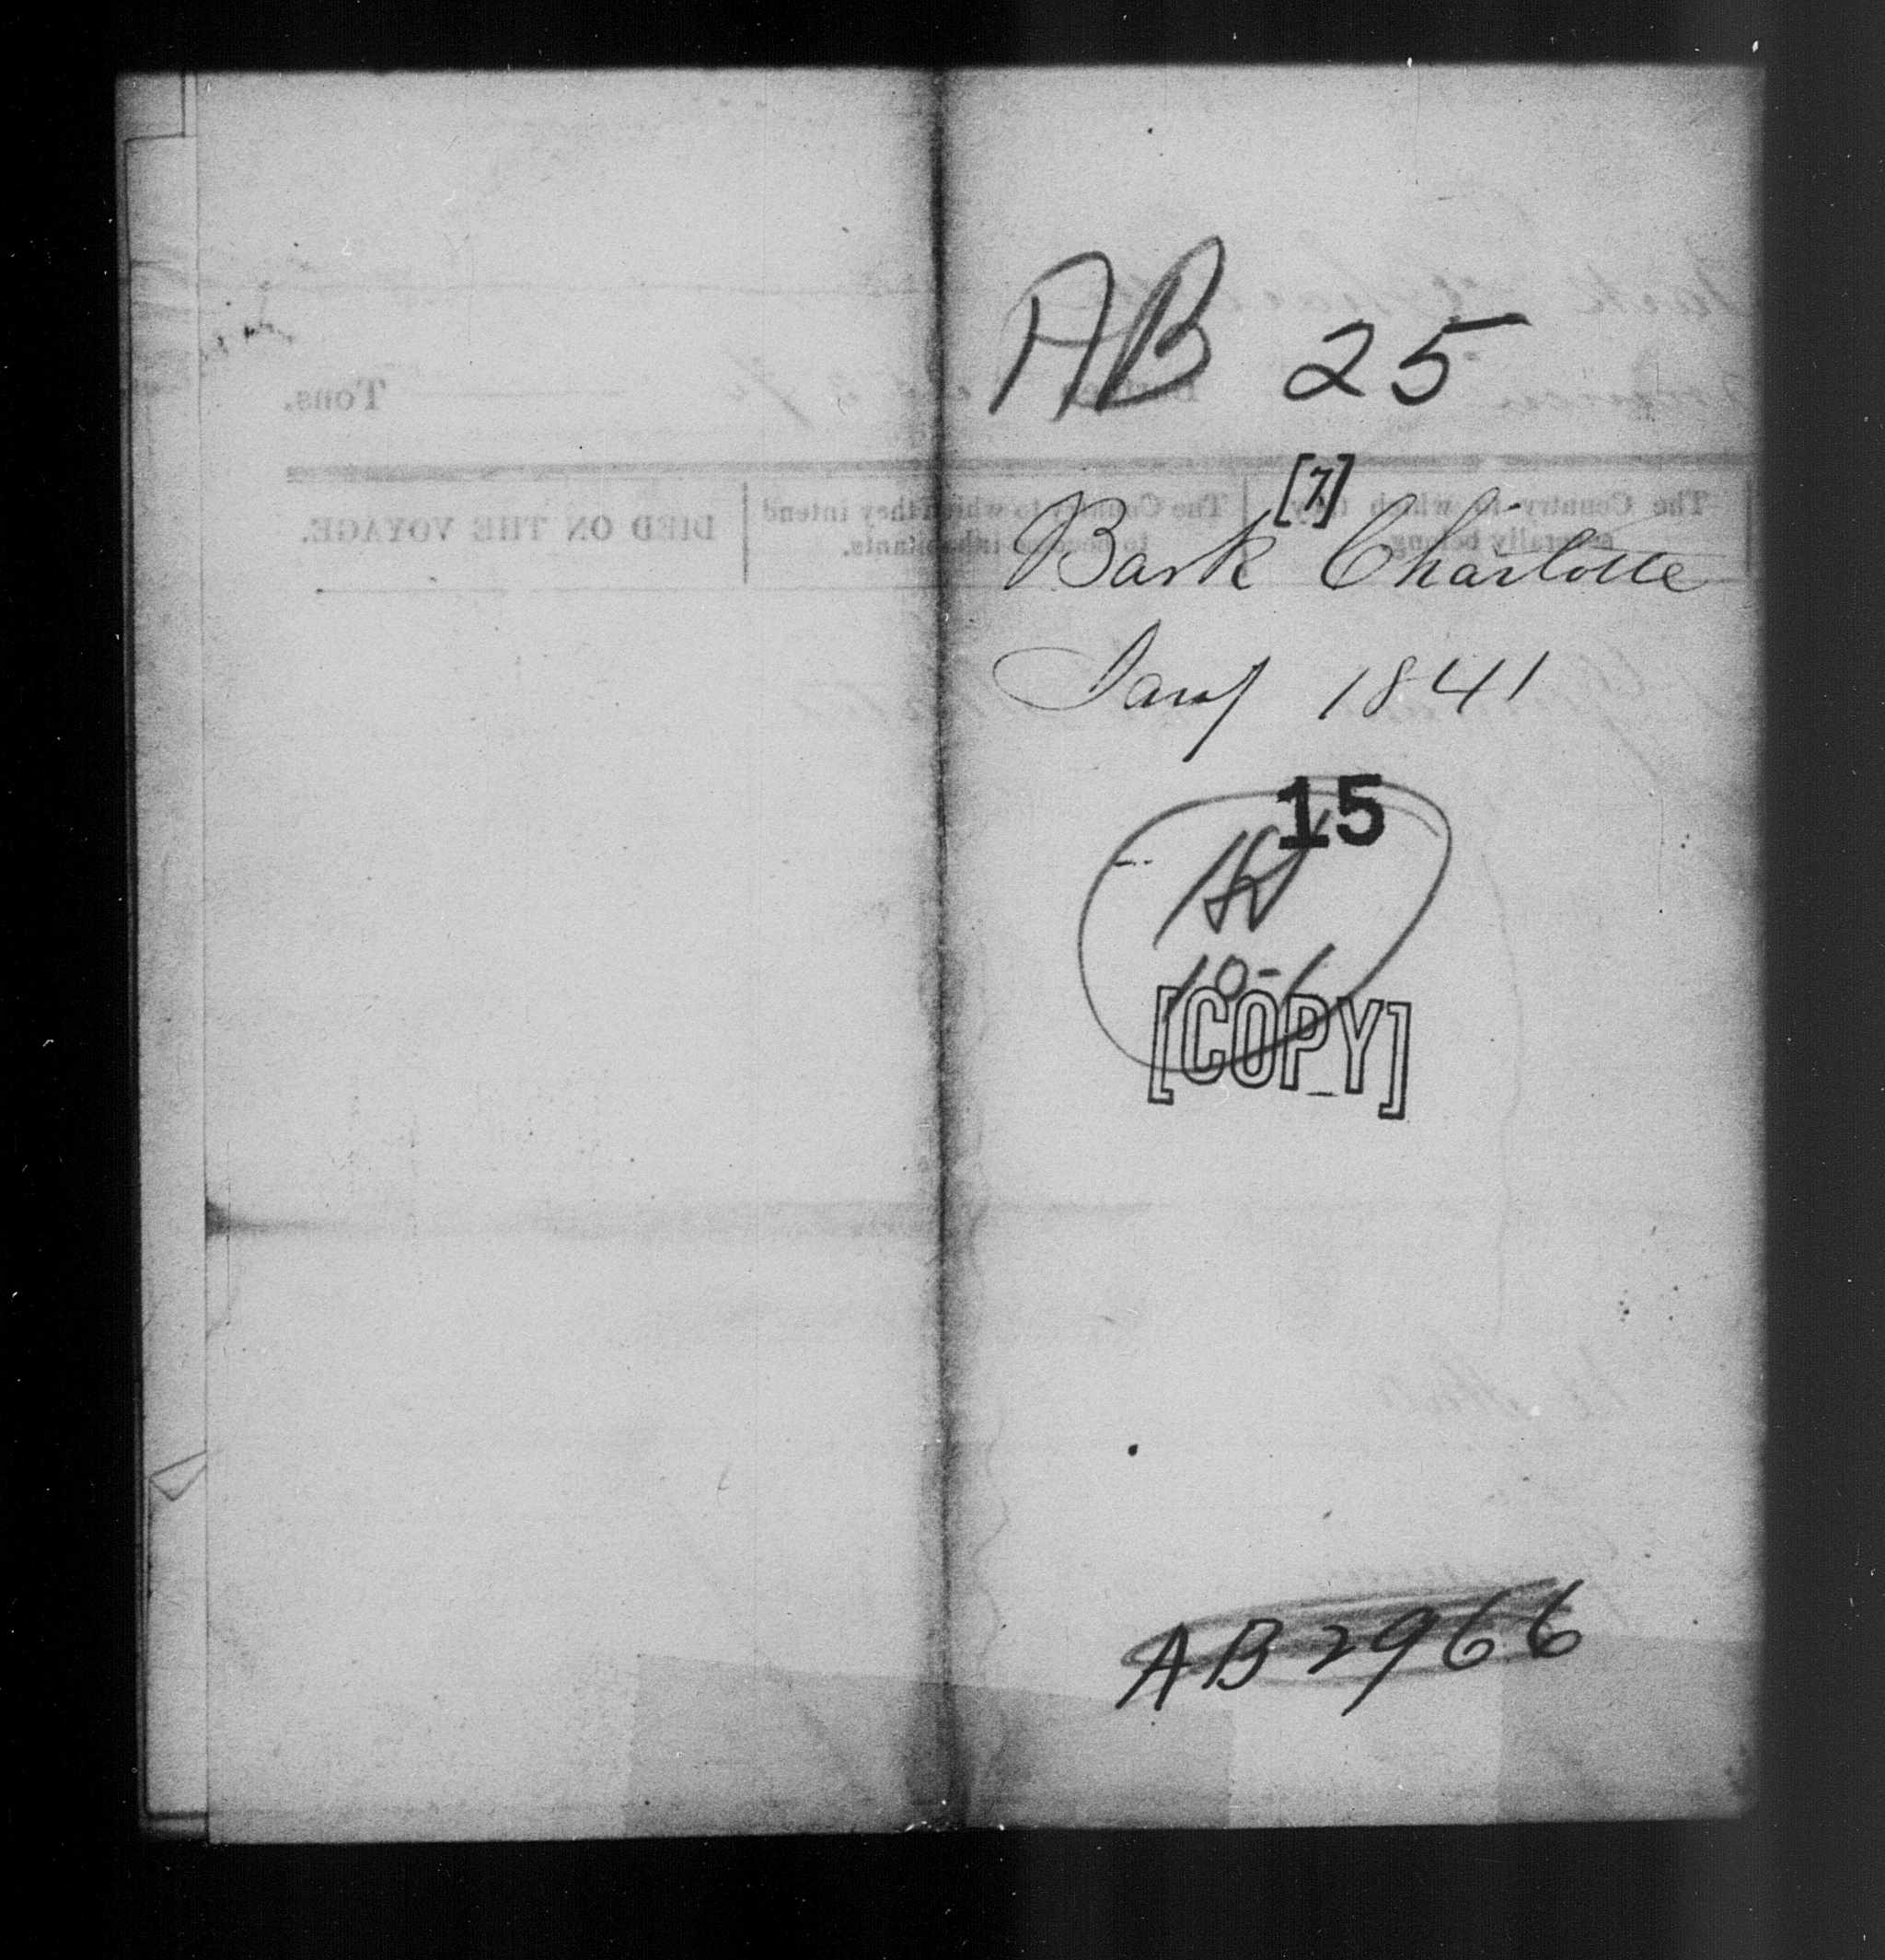 AB 25
[7]
Bark Charlotte
Jany 1841
15
10-1
[COPY]
AB 2966
Tons.
The Country to which they
generally belong.
The Country to which they intend
to become inhabitants.
DIED ON THE VOYAGE.